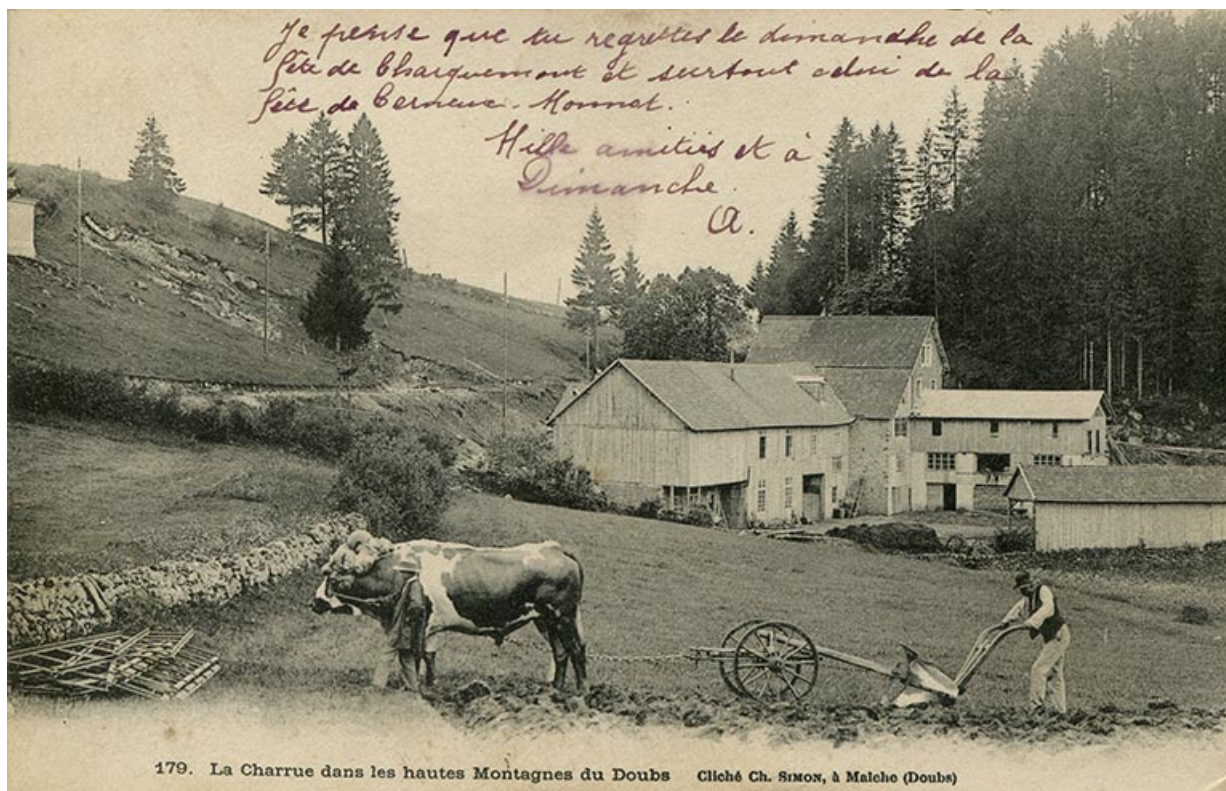 Je pense que tu regrettes le dimanche de la
fête de Charquemont et surtout celui de la
fête de Cerneux-Monnot.
Mille amitiés et à
Dimanche.
A.
179. La Charrue dans les hautes Montagnes du Doubs Cliché Ch. SIMON, à Maîche (Doubs)